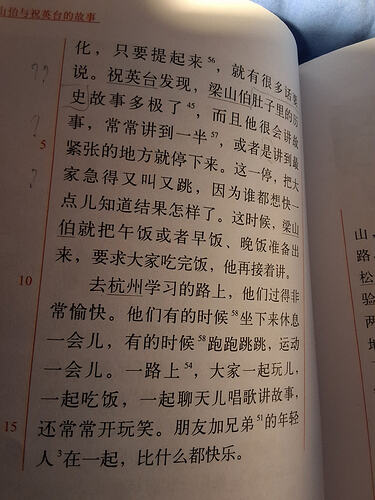 山伯与祝英台的故事
化，只要提起来56，就有很多话要
说。祝英台发现，梁山伯肚子里的历
史故事多极了45，而且他很会讲故
事，常常讲到一半57，或者是讲到最
5
紧张的地方就停下来。这一停，把大
家急得又叫又跳，因为谁都想快一
点儿知道结果怎样了。这时候，梁山
伯就把午饭或者早饭、晚饭准备出
来，要求大家吃完饭，他再接着讲。
10
去杭州学习的路上，他们过得非
常愉快。他们有的时候58坐下来休息
一会儿，有的时候58跑跑跳跳，运动
一会儿。一路上54，大家一起玩儿，
一起吃饭，一起聊天儿唱歌讲故事，
15
还常常开玩笑。朋友加兄弟51的年轻
人3在一起，比什么都快乐。
山，
路，
松
验
两